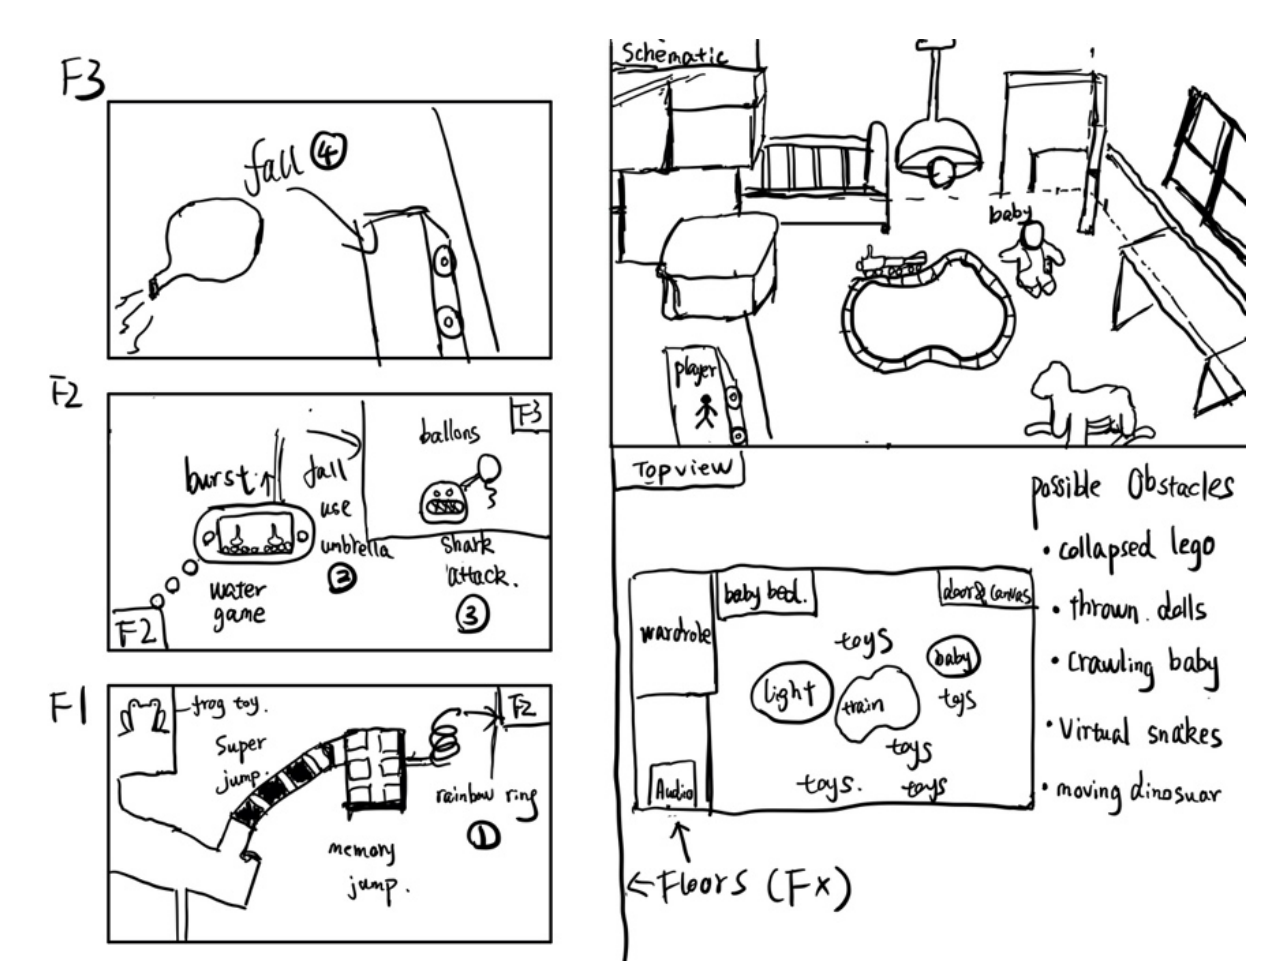 F3
fall ④
F2
F3
ballons
burst
fall
use
umbrella
②
shark
attack.
③
water
game
F2
F1
frog toy.
F2
Super
jump.
rainbow ring
①
memory
jump.
Schematic
baby
player
Topview
baby bed.
door & canvas
wardrobe
toys
baby
light
train
toys
toys
toys.
toys
Audio
← Floors (Fx)
possible Obstacles
• collapsed lego
• thrown dolls
• Crawling baby
• Virtual snakes
• moving dinosuar